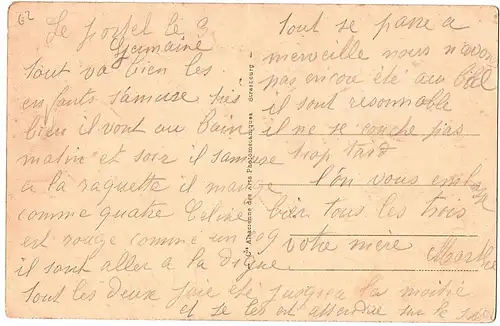 62
Le portel le 3
Germaine
tout va bien les
enfants s'amuse très
bien il vont au bain
matin et soir il s'amuse
a la raquette il mange
comme quatre Celine
est rouge comme un coq
il sont aller a la digue
tout les deux j'aie été jusqu'a la moitié
et je les est attendue sur le
tout se passe a
merveille nous n'avon
pas encore été au
il sont resonnable
il ne se couche pas
trop tard
l'on vous embrasse
bien tous les trois
votre mère
Marthe
Cie Alsacienne des Arts Photomécaniques - Strasbourg